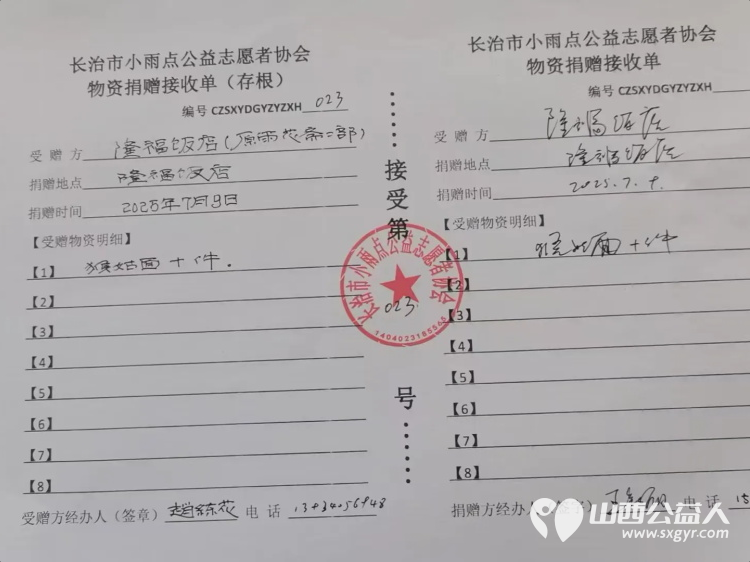 长治市小雨点公益志愿者协会
物资捐赠接收单（存根）
编号 CZSXYDGYZYZXH 023
受 赠 方 隆福饭店(原雨花斋二部)
捐赠地点 隆福饭店
捐赠时间 2025年7月9日
【受赠物资明细】
【1】 猴姑面十件.
【2】
【3】
【4】
【5】
【6】
【7】
【8】
受赠方经办人（签章） 电 话
接受第
023
号
长治市小雨点公益志愿者协会
1404023185565
长治市小雨点公益志愿者协会
物资捐赠接收单
编号 CZSXYDGYZYZXH
受 赠 方 隆福饭店
捐赠地点 隆福饭店
捐赠时间 2025.7.9.
【受赠物资明细】
【1】 猴姑面十件
【2】
【3】
【4】
【5】
【6】
【7】
【8】
捐赠方经办人 电 话
山西公益人
www.sxgyr.com